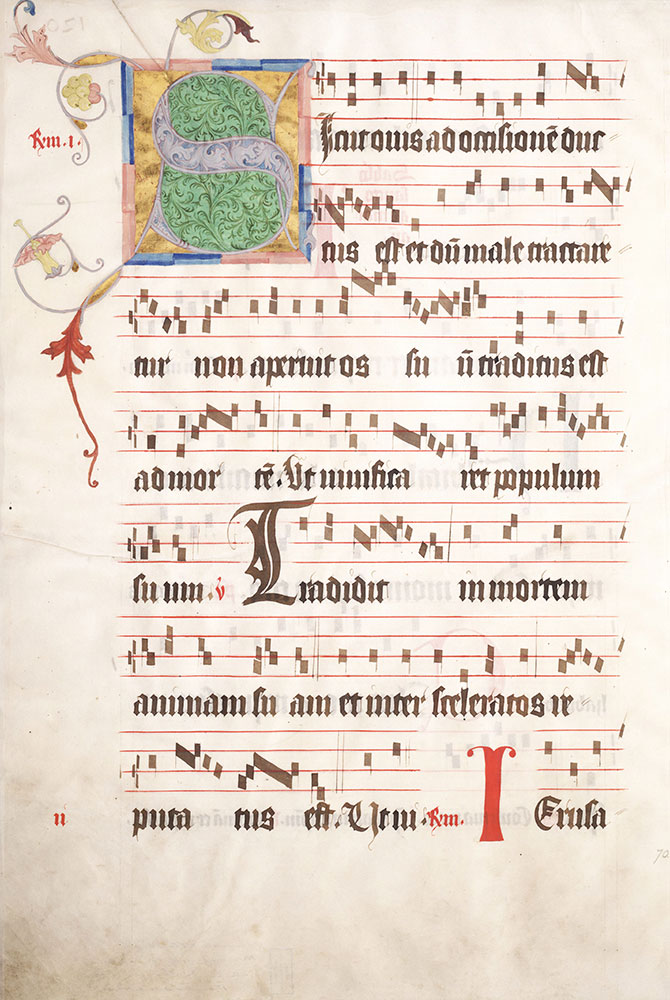 Rm. i.
Sicut ouis ad occisionē duc
tus est et dū male tractare
tur non aperuit os su ū traditus est
ad mor tē. Ut uiuifica ret populum
suum. v Tradidit in mortem
animam su am et inter sceleratos re
puta tus est Ut ui. Rm. IErusa
ii